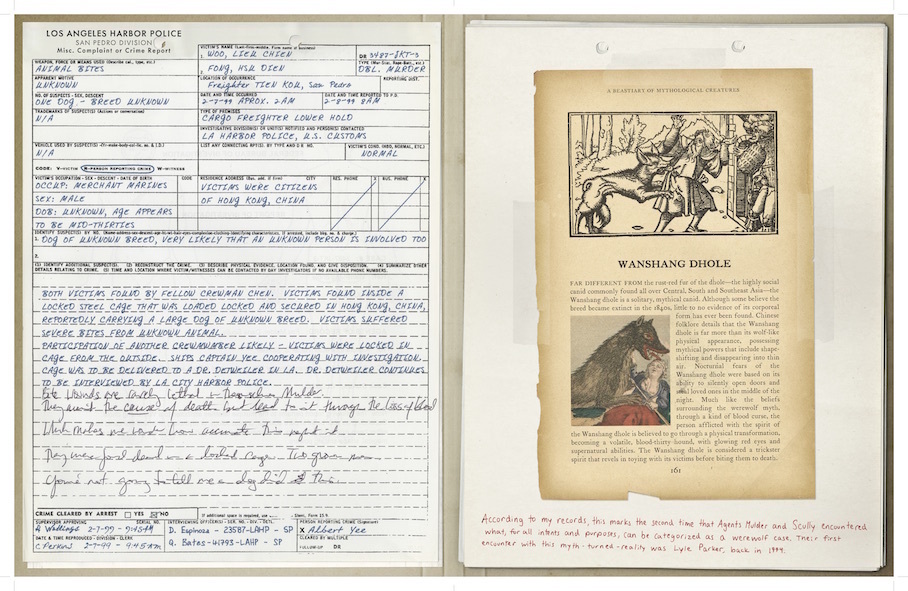 LOS ANGELES HARBOR POLICE
SAN PEDRO DIVISION
Misc. Complaint or Crime Report
VICTIM'S NAME (Last-first-middle. Firm name if business)
WOO, LIEU CHIEN
DR 3487-JKT-3
WEAPON, FORCE OR MEANS USED (Describe cal, type, etc.)
ANIMAL BITES
FONG, HSU DIEN
DBL. MURDER
APPARENT MOTIVE
UNKNOWN
LOCATION OF OCCURRENCE
Freighter TIEN KOU, San Pedro
REPORTING DIST.
NO. OF SUSPECTS - SEX, DESCENT
ONE DOG - BREED UNKNOWN
DATE AND TIME OCCURRED
2-7-99 APROX. 2AM
DATE AND TIME REPORTED TO P.D.
2-8-99 8AM
TRADEMARKS OF SUSPECT(S) (Actions or conversation)
N/A
TYPE OF PREMISES
CARGO FREIGHTER LOWER HOLD
INVESTIGATIVE DIVISION(S) OR UNIT(S) NOTIFIED AND PERSON(S) CONTACTED
LA HARBOR POLICE, U.S. CUSTOMS
N/A
LIST ANY CONNECTING RPT(S). BY TYPE AND D R NO.
VICTIM'S COND. (HBD, NORMAL, ETC.)
NORMAL
CODE: V-VICTIM R-PERSON REPORTING CRIME W-WITNESS
VICTIM'S OCCUPATION - SEX - DESCENT - DATE OF BIRTH
CODE
RESIDENCE ADDRESS (Bus. add. if firm) CITY
RES. PHONE
X
BUS. PHONE
X
OCCUP: MERCHANT MARINES
VICTIMS WERE CITIZENS
SEX: MALE
OF HONG KONG, CHINA
DOB: UNKNOWN, AGE APPEARS
TO BE MID-THIRTIES
1. DOG OF UNKNOWN BREED, VERY LIKELY THAT AN UNKNOWN PERSON IS INVOLVED TOO
2.
(1) IDENTIFY ADDITIONAL SUSPECT(S). (2) RECONSTRUCT THE CRIME. (3) DESCRIBE PHYSICAL EVIDENCE, LOCATION FOUND, AND GIVE DISPOSITION. (4) SUMMARIZE OTHER
DETAILS RELATING TO CRIME. (5) TIME AND LOCATION WHERE VICTIM/WITNESSES CAN BE CONTACTED BY DAY INVESTIGATORS IF NO AVAILABLE PHONE NUMBERS.
BOTH VICTIMS FOUND BY FELLOW CREWMAN CHEN. VICTIMS FOUND INSIDE A
LOCKED STEEL CAGE THAT WAS LOADED LOCKED AND SECURED IN HONG KONG, CHINA,
REPORTEDLY CARRYING A LARGE DOG OF UNKNOWN BREED. VICTIMS SUFFERED
SEVERE BITES FROM UNKNOWN ANIMAL.
PARTICIPATION OF ANOTHER CREWMEMBER LIKELY - VICTIMS WERE LOCKED IN
CAGE FROM THE OUTSIDE. SHIPS CAPTAIN YEE COOPERATING WITH INVESTIGATION.
CAGE WAS TO BE DELIVERED TO A DR. DETWEILER IN LA. DR. DETWEILER CONTINUES
TO BE INTERVIEWED BY LA CITY HARBOR POLICE.
Bite wounds are rarely lethal in themselves Mulder.
They aren't the cause of death but lead to it through the loss of blood
Which makes me wonder how accurate this report is
They were found dead in a locked cage. Two grown men
You're not going to tell me a dog did this.
CRIME CLEARED BY ARREST YES NO
SUPERVISOR APPROVING SERIAL NO.
2-7-99 - 9:45AM
INTERVIEWING OFFICER(S) - SER. NO - DIV. - DETL.
D. Espinoza - 23587-LAHP - SP
PERSON REPORTING CRIME (Signature)
X Albert Yee
DATE & TIME REPRODUCED - DIVISION - CLERK
C Perkins 2-7-99 - 9:45am
Q. Batas-41793-LAHP - SP
CLEARED BY MULTIPLE
FOLLOW-UP DR
A BEASTIARY OF MYTHOLOGICAL CREATURES
WANSHANG DHOLE
FAR DIFFERENT FROM the rust-red fur of the dhole—the highly social
canid commonly found all over Central, South and Southeast Asia—the
Wanshang Dhole is a solitary, mythical canid. Although some believe the
breed became extinct in the 1840s, little to no evidence of its corporal
form has ever been found. Chinese
folklore details that the Wanshang
dhole is far more than its wolf-like
physical appearance, possessing
mythical powers that include shape-
shifting and disappearing into thin
air. Nocturnal fears of the
Wanshang dhole were based on its
ability to silently open doors and
loved ones in the middle of the
night. Much like the beliefs
surrounding the werewolf myth,
through a kind of blood curse, the
person afflicted with the spirit of
the Wanshang dhole is believed to go through a physical transformation,
becoming a volatile, blood-thirsty-hound, with glowing red eyes and
supernatural abilities. The Wanshang dhole is considered a trickster
spirit that revels in toying with its victims before biting them to death.
161
According to my records, this marks the second time that Agents Mulder and Scully encountered
what, for all intents and purposes, can be categorized as a werewolf case. Their first
encounter with this myth-turned-reality was Lyle Parker, back in 1994.